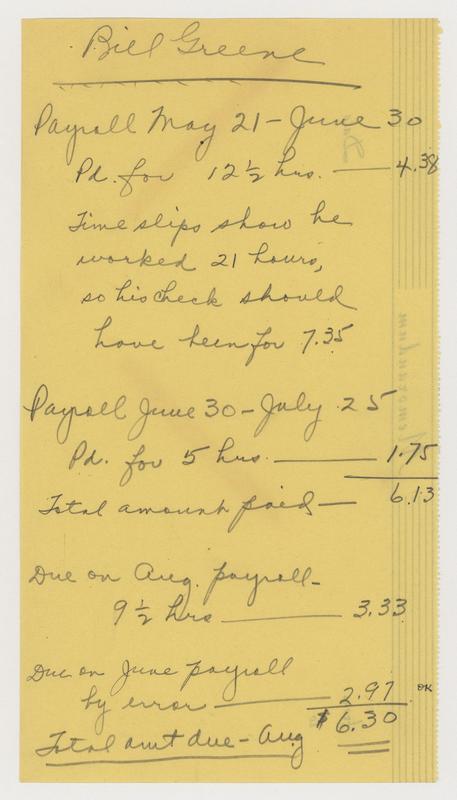 Bill Greene
Payroll May 21 - June 30
Pd. for 12 ½ hrs. — 4.38
Time slips show he
worked 21 hours,
so his check should
have been for 7.35
Payroll June 30 - July 25
Pd. for 5 hrs. — 1.75
Total amount paid — 6.13
Due on Aug. payroll -
9 ½ hrs — 3.33
Due on June payroll
by error — 2.97 OK
Total amt due - Aug $6.30